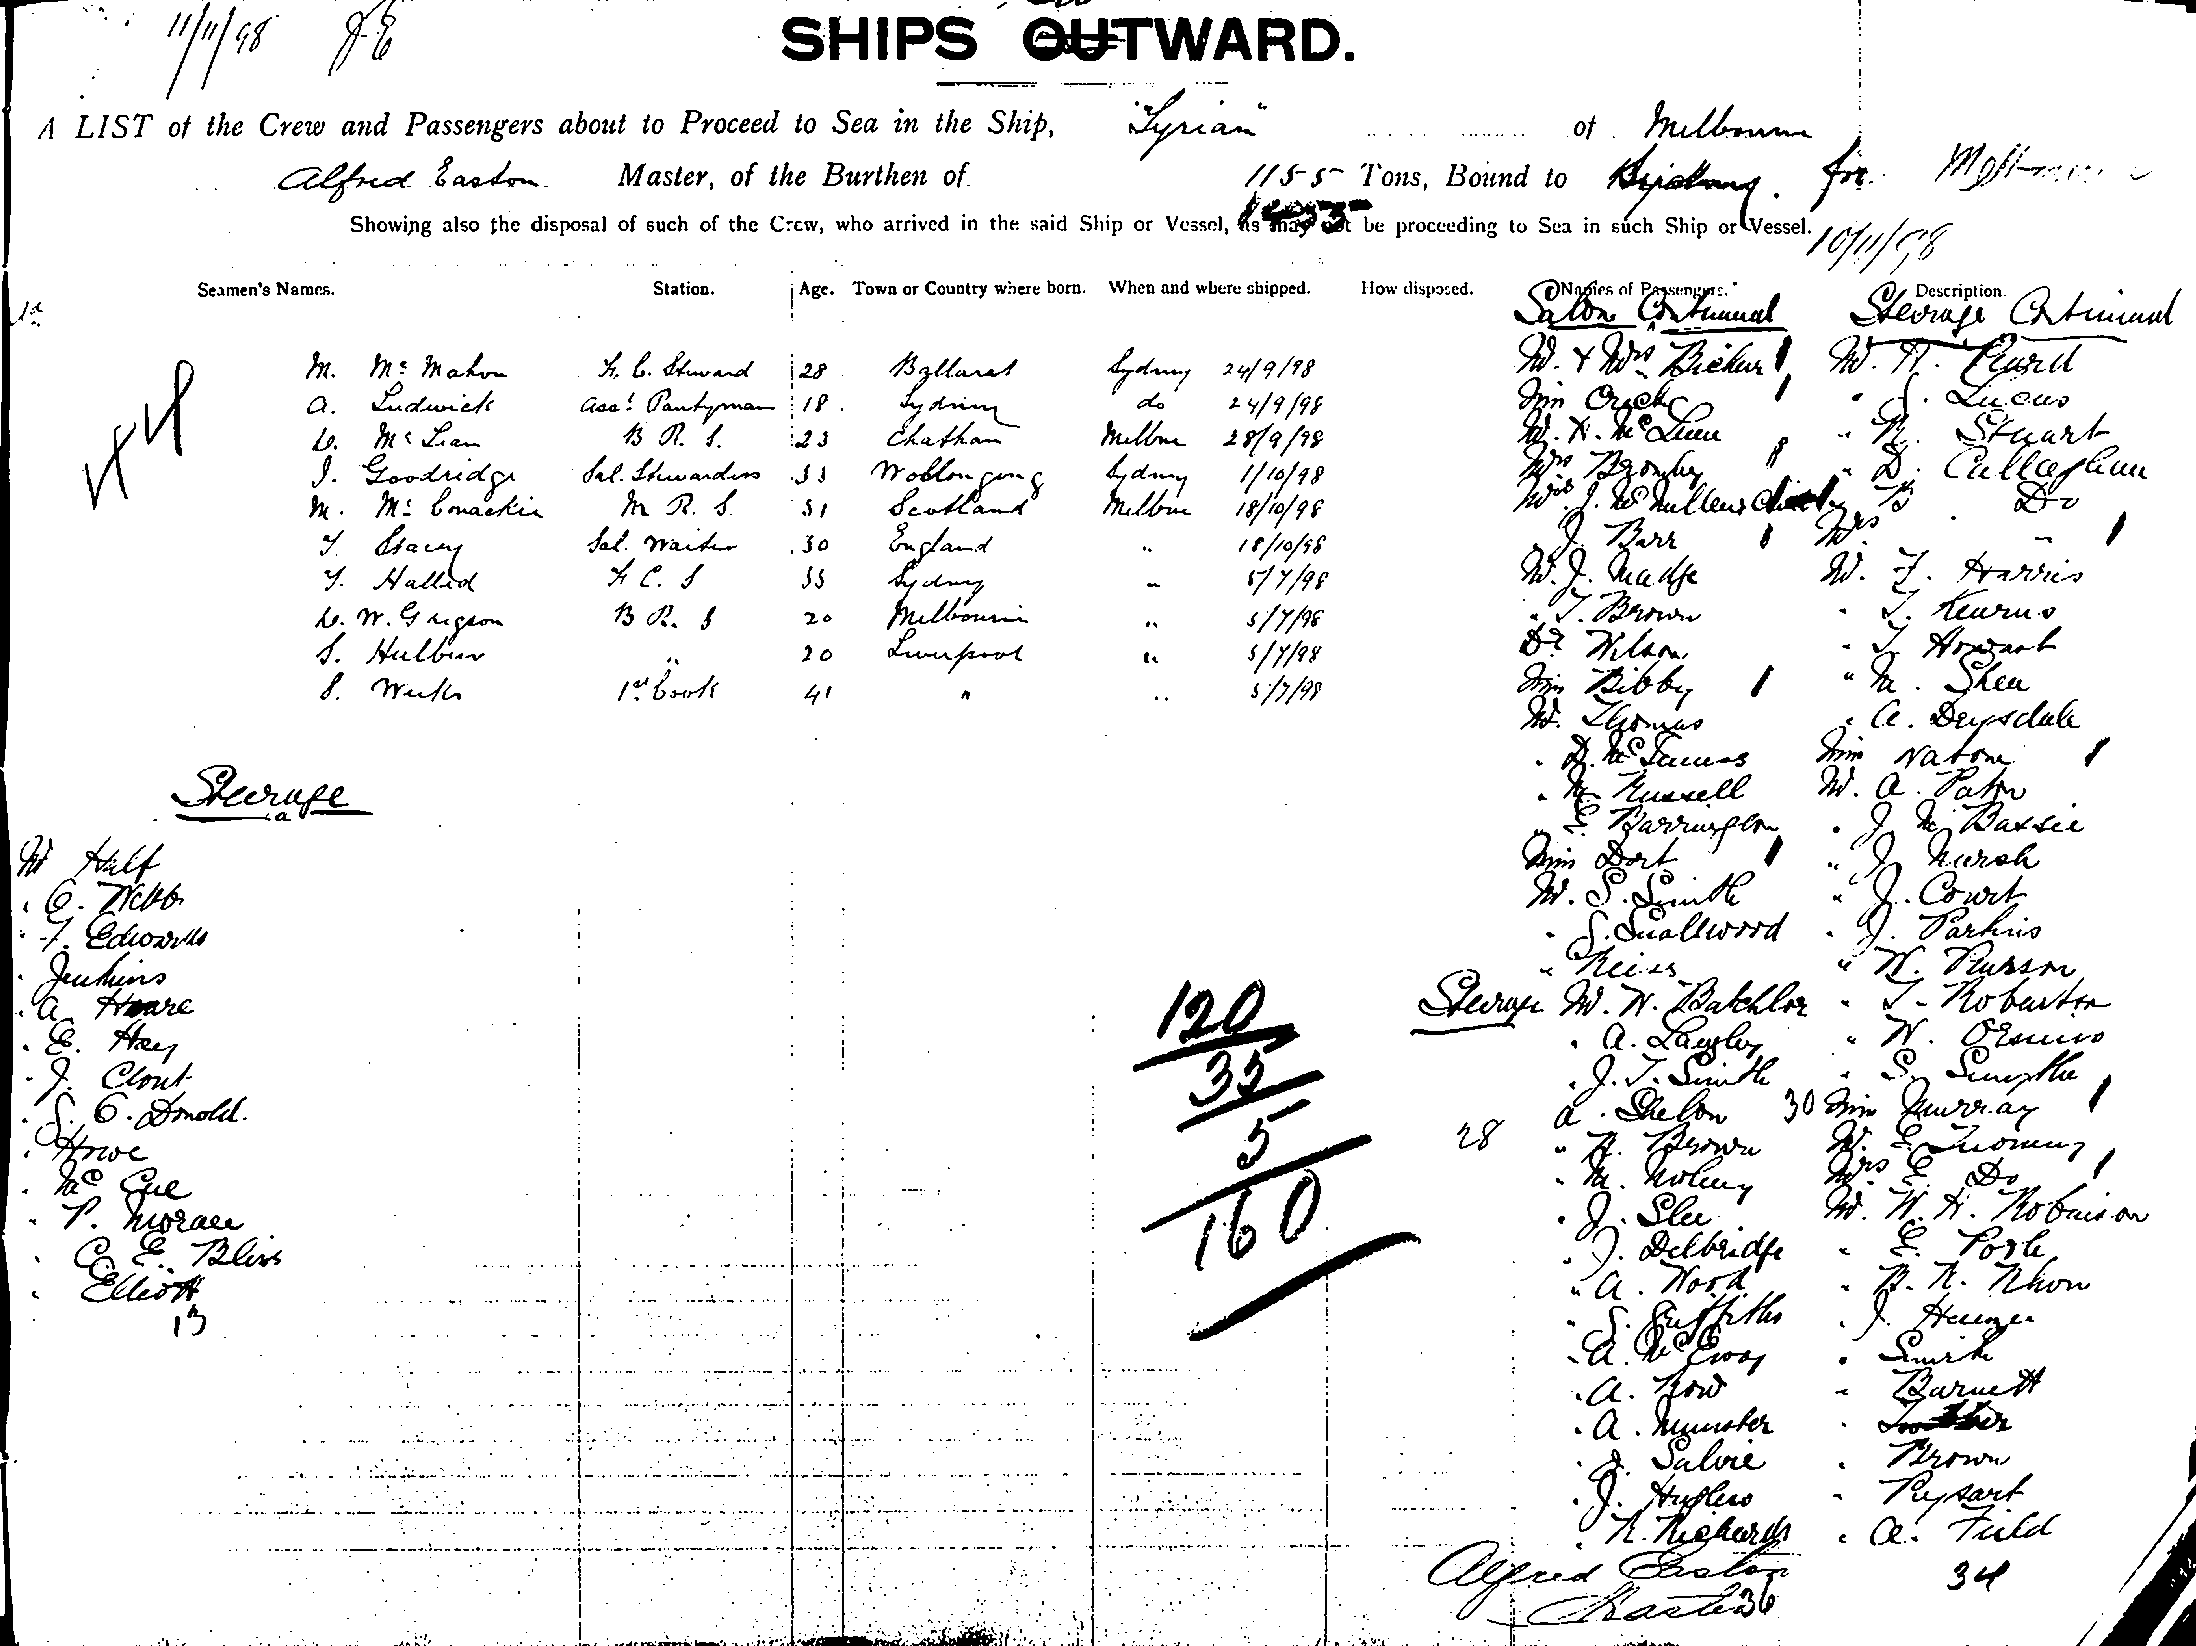 11/11/98 J.E.
SHIPS OUTWARD.
A LIST of the Crew and Passengers about to Proceed to Sea in the Ship, "Syrian" of Melbourne
Alfred Easton Master, of the Burthen of 1155 Tons, Bound to Sydney. for
Showing also the disposal of such of the Crew, who arrived in the said Ship or Vessel, as may not be proceeding to Sea in such Ship or Vessel.
10/11/98
Seamen's Names. Station. Age. Town or Country where born. When and where shipped. How disposed. Names of Passengers. Description.
M. McMahon F. C. Steward 28 Ballarat Sydney 24/9/98
A. Ludwick Asst Pantryman 18 Sydney do 24/9/98
D. McLean B R. S. 23 Chatham Melbne 28/9/98
J. Goodridge Sal. Stewardess 33 Wollongong Sydney 1/10/98
M. McConachie M R. S. 31 Scotland Melbne 18/10/98
T. Stacey Sal. Waiter 30 England " 18/10/98
T. Halled F C. S 33 Sydney " 5/7/98
D. W. Grigson B R. S 20 Melbourne " 5/7/98
S. Hulbun " 20 Liverpool " 5/7/98
S. Weeks 1st Cook 41 " " 5/7/98
Steerage
Mr Half
" C. Webb
" F. Edwards
" Jenkins
" A Hoare
" E. Hay
" J. Clout
" S. C. Donold.
" Howe
" McCue
" P. Morace
" C. E. Bliss
" Elliott
13
120
35
5
160
Saloon Continued
Mr. & Mrs Bicker
Miss Crick
Mr. H. McLean
Mrs Bromley
Mrs J. McMullen
J. Barr
Mr. J. Madge
" T. Brown
Dr Wilson
Miss Bibby
Mr. Thomas
" D. McInnes
" Russell
" E. Barrington
Miss Dort
Mr. S. Smith
" S. Smallwood
" Reiss
Steerage Mr. W. Batchlor
" A. Langley
" J. T. Smith
A. Shelon
28 " H. Brown
" M. Nolmy
" J. Slee
" J. Delbridge
" A. Wood
" S. Griffiths
" A. McEvoy
" A. Row
" A. Munster
" J. Salvie
" J. Hughes
" R. Richards
Alfred Easton
Master
36
Steerage Continued
Mr. R. Rurd
" S. Lucas
" R. Stuart
" D. Callaghan
B Do
Mrs "
Mr. F. Harris
" T. Kearns
" T. Howart
" M. Shea
" A. Drysdale
Miss Watson
Mr. A. Paton
" J. McBassie
" J. Marsh
" J. Court
" J. Parkins
" W. Russon
" T. Robertson
" W.
" S. Smythe
30 Miss Murray
Mr. E. Twomey
Mrs E. Do
Mr. W. H. Robinson
" E. Pople
" R. R. Nixon
" J.
" Smith
" Burnett
" Brown
" Rysart
" A. Field
34